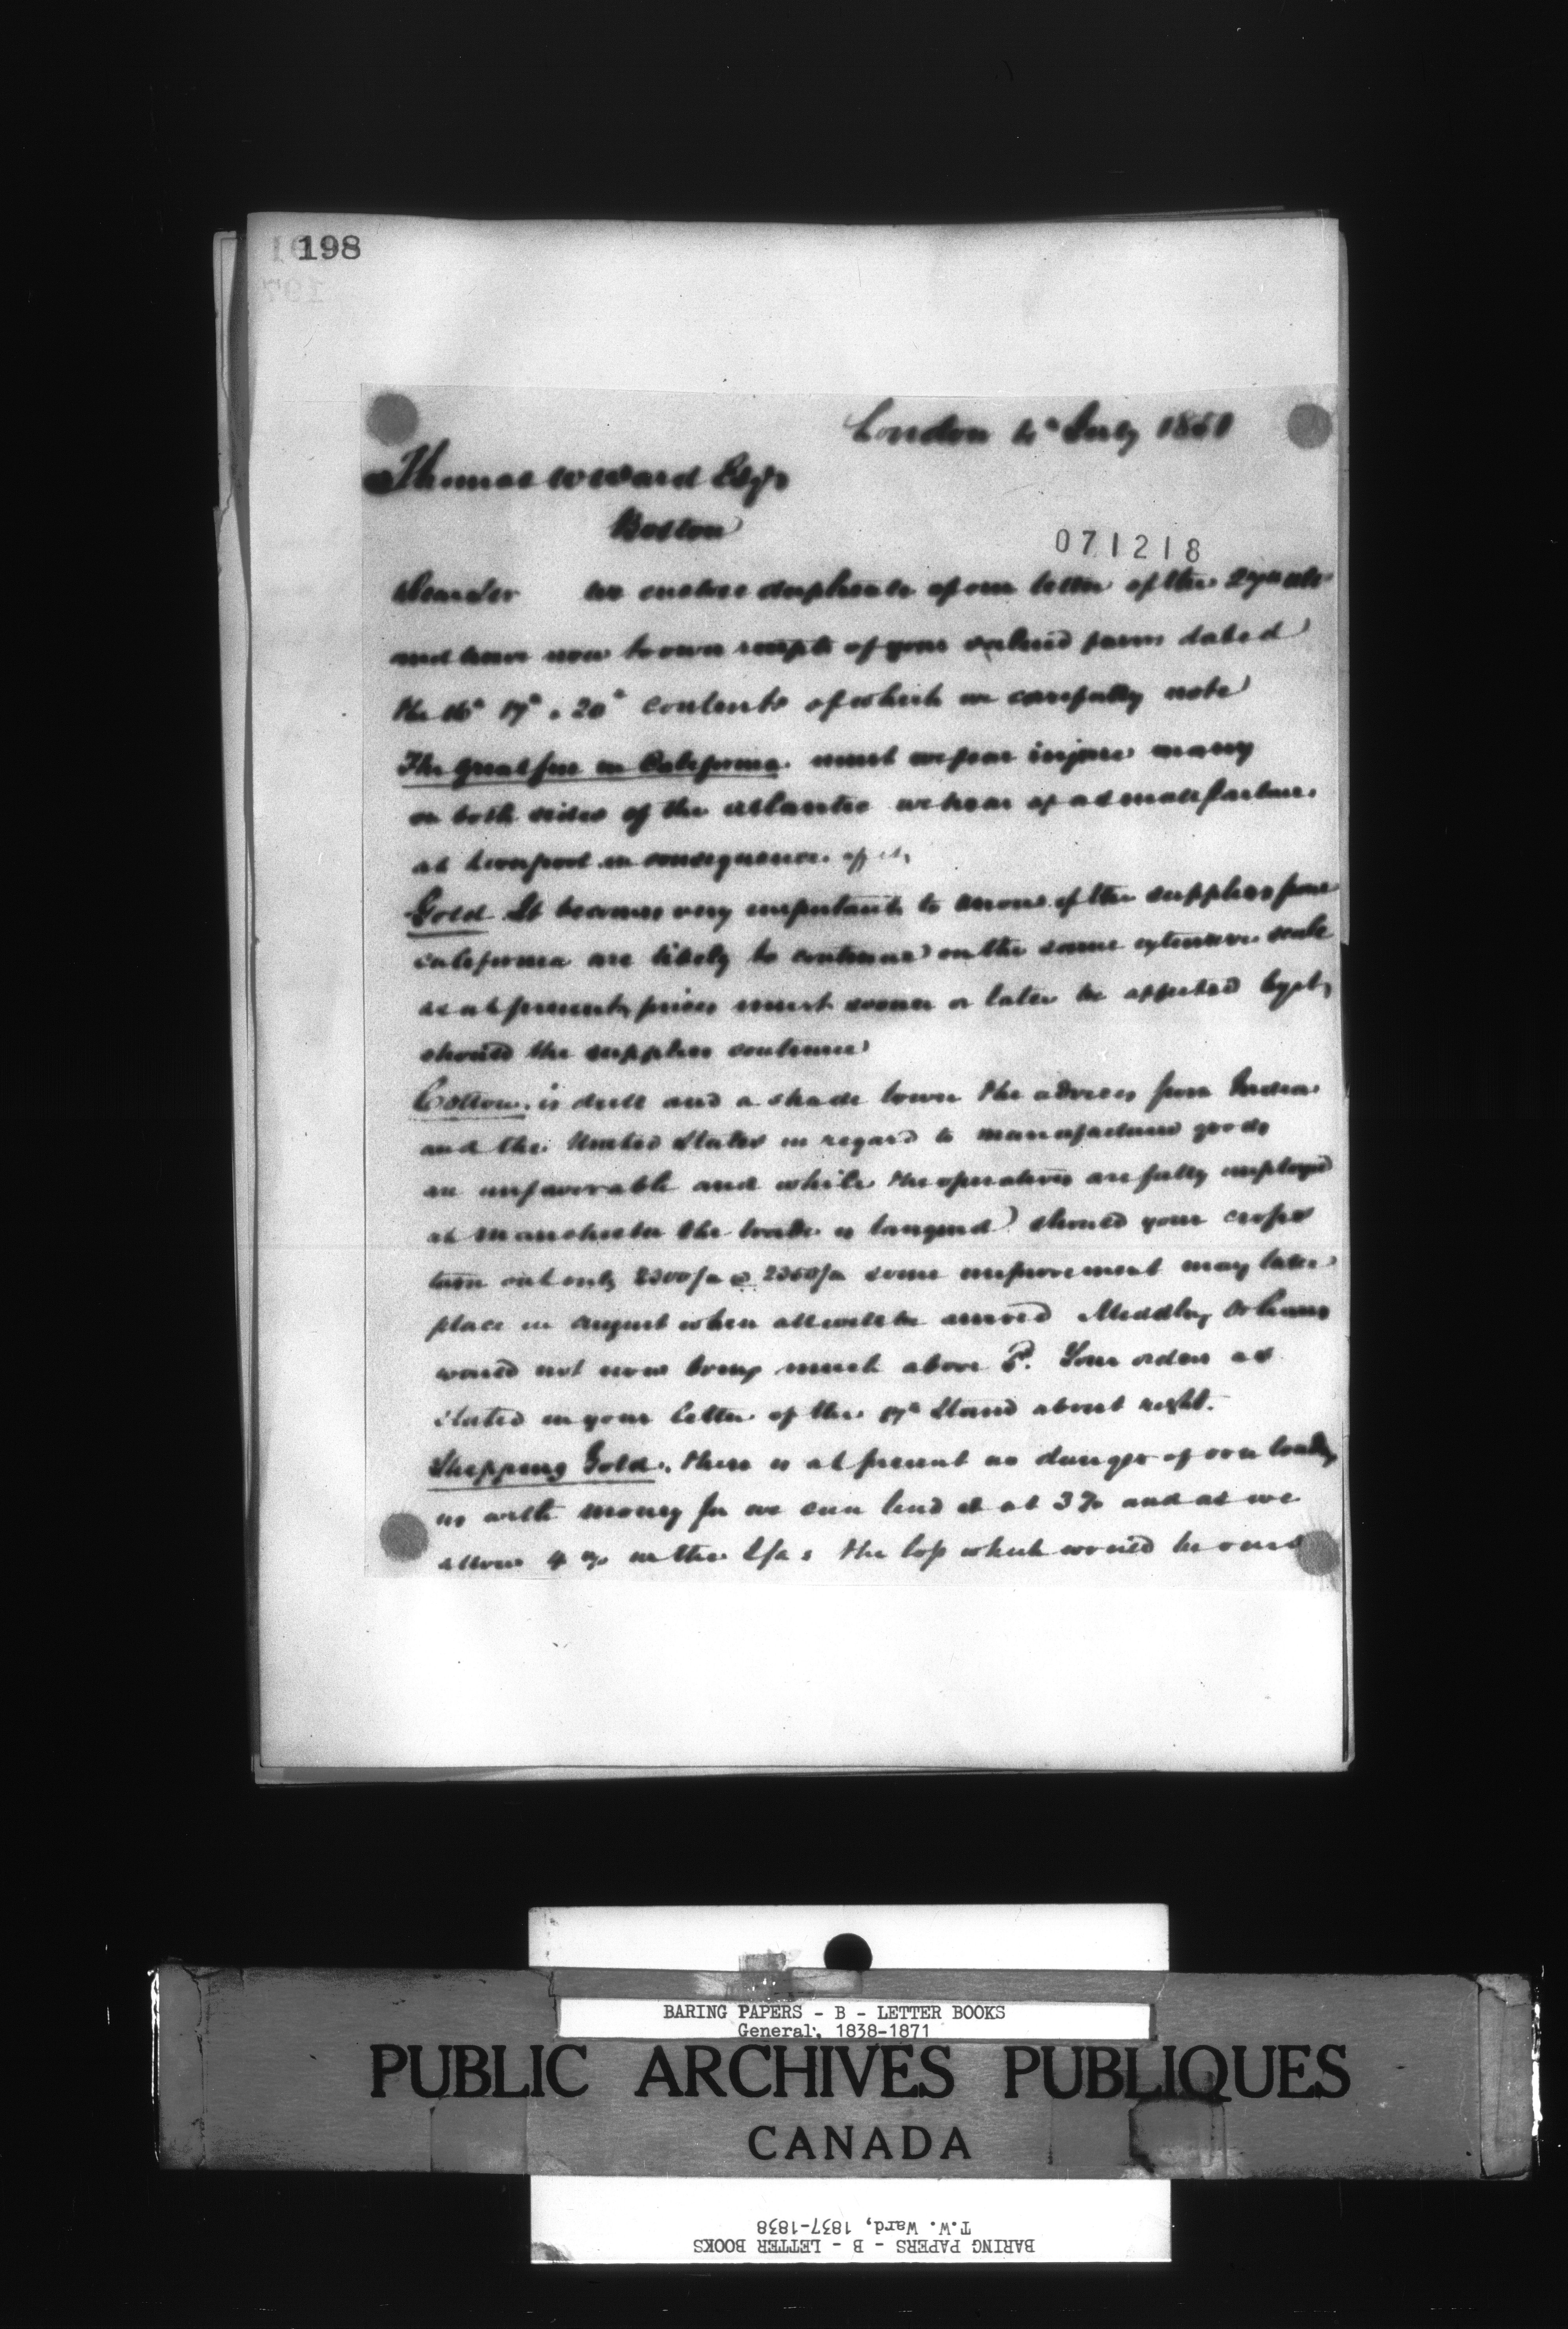 198
197
London 4th July 1851
Thomas W Ward Esqr
Boston
071218
Dear Sir We enclose duplicate of our letter of the 27th ulto
and have now to own receipt of your valued favors dated
the 16th 17th & 20th contents of which we carefully note
The great fire in California must we fear injure many
on both sides of the Atlantic we hear of a small failure
at Liverpool in consequence of it,
Gold It becomes very important to know if the supplies from
California are likely to continue on the same extensive scale
as at present, prices must sooner or later be affected by it,
should the supplies continue
Cotton is dull and a shade lower the advices from India
and the United States in regard to manufactured goods
are unfavorable and while the operatives are fully employed
at Manchester the trade is languid should your crops
turn out only 2300/m @ 2350/m some improvement may take
place in August when all will be arrived Middling Orleans
would not now bring much above Your orders as
stated in your letter of the 17th stand about right.
Shipping Gold. There is at present no danger of over loading
us with money for we can lend it at 3% and as we
allow 4% in the the loss which would be ours
BARING PAPERS - B - LETTER BOOKS
General, 1838-1871
PUBLIC ARCHIVES PUBLIQUES
CANADA
T.W. Ward, 1837-1838
BARING PAPERS - B - LETTER BOOKS